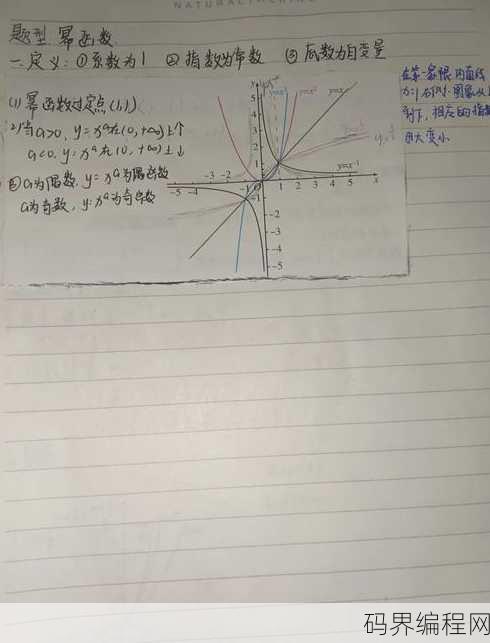 NATURAL
题型 幂函数
一、定义：①系数为1 ②指数为常数 ③底数为自变量
(1) 幂函数过定点(1,1)
(2)当a>0, y=xᵃ在(0,+∞)上↑
a<0, y=xᵃ在(0,+∞)上↓
③a为偶数, y=xᵃ为偶函数
a为奇数, y=xᵃ为奇函数
y=x³
y=x²
y=x
y=x⁻¹
-5 -4 -3 -2 -1 O 1 2 3 4 5 x
5
4
3
2
-1
-2
-3
-4
-5
在第一象限内直线
x=1右侧, 图象从上
到下, 相应的指数
由大变小
码界编程网